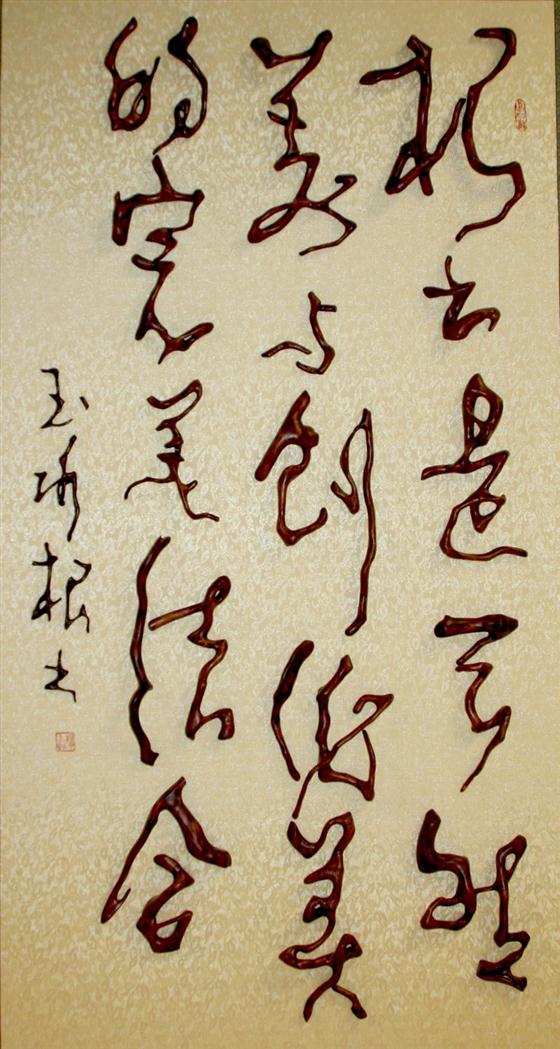 根书是天然
美与创作美
的完美结合
玉 根书